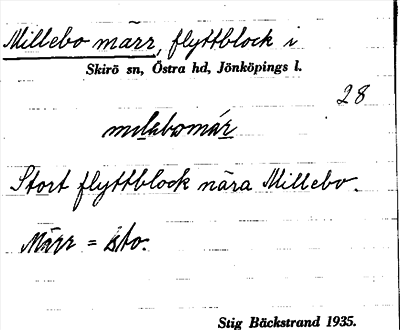 Millebo märr, flyttblock i
Skirö sn, Östra hd, Jönköpings l.
28
mılabomár
Stort flyttblock nära Millebo.
Märr = sto.
Stig Bäckstrand 1935.